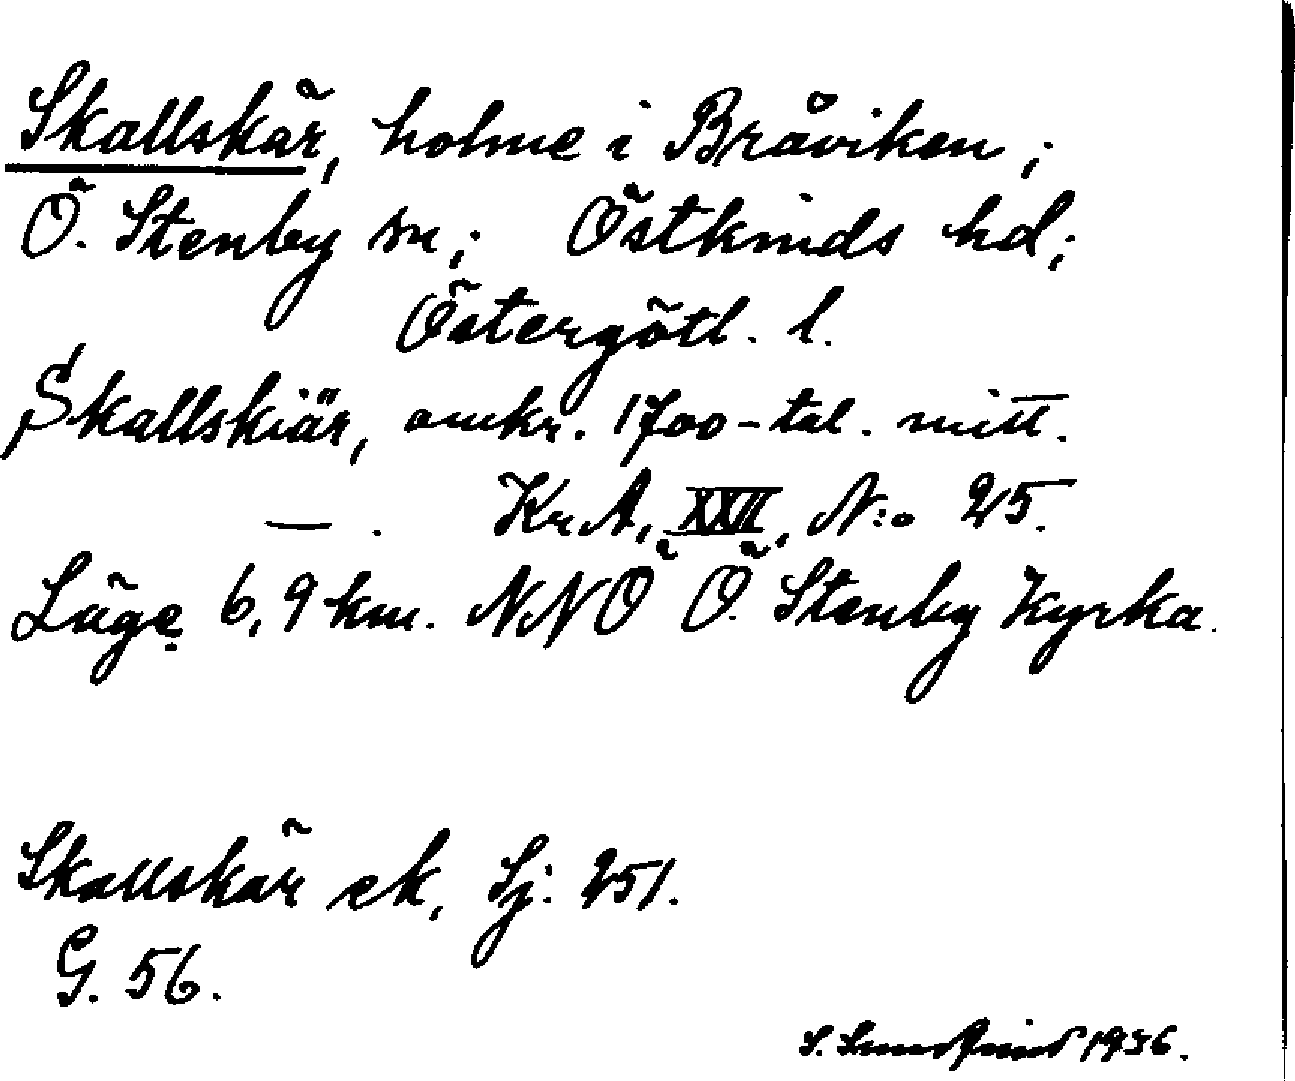 Skallskär, holme i Bråviken;
Ö. Stenby sn; Östkinds hd;
Östergötl. l.
Skallskiär, omkr. 1700-tal. mitt.
— . KrA, XXII, N:o 25.
Läge 6,9 km. NNÖ Ö. Stenby kyrka.
Skallskär ek, Sj: 251.
G. 56.
S. 1936.